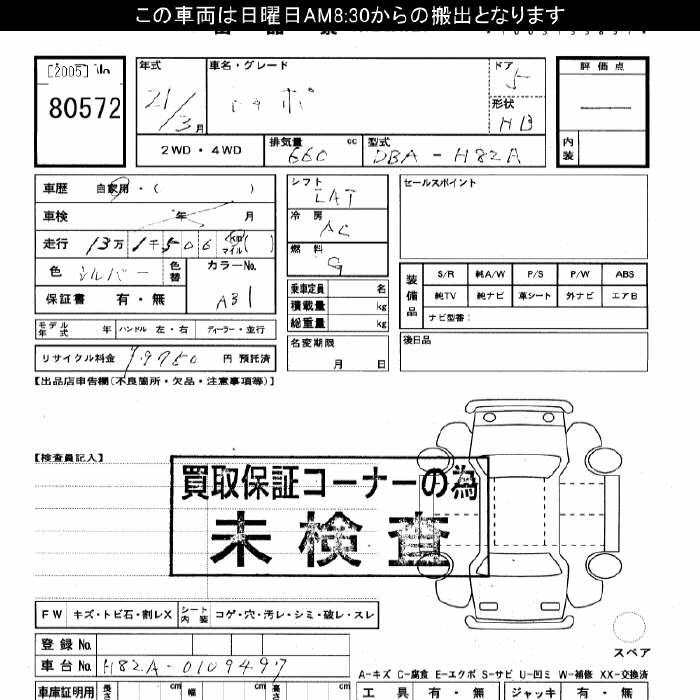 この車両は日曜日AM8:30からの搬出となります
[2005] No
80572
年式
21/3月
車名・グレード
トッポ
ドア
5
形状
HB
評価点
内装
2WD・4WD
排気量
660 cc
型式
DBA-H82A
車歴 自家用・( )
車検 年 月
走行 13万 1千 506 km マイル ( )
色 シルバー 色替
カラーNo.
A31
保証書 有・無
シフト
LAT
冷房
AC
燃料
G
乗車定員 名
積載量 kg
総重量 kg
セールスポイント
装備品
S/R 純A/W P/S P/W ABS
純TV 純ナビ 革シート 外ナビ エアB
ナビ型番:
モデル年式 年 ハンドル 左・右 ディーラー・並行
リサイクル料金 円 預託済
名変期限
月 日
後日品
【出品店申告欄(不良箇所・欠品・注意事項等)】
【検査員記入】
買取保証コーナーの為
未検査
FW キズ・トビ石・割レX シート内装 コゲ・穴・汚レ・シミ・破レ・スレ
スペア
登録No.
車台No. H82A-0109497
A-キズ C-腐食 E-エクボ S-サビ U-凹ミ W-補修 XX-交換済
車庫証明用 長さ cm 幅 cm 高さ cm
工具 有・無 ジャッキ 有・無